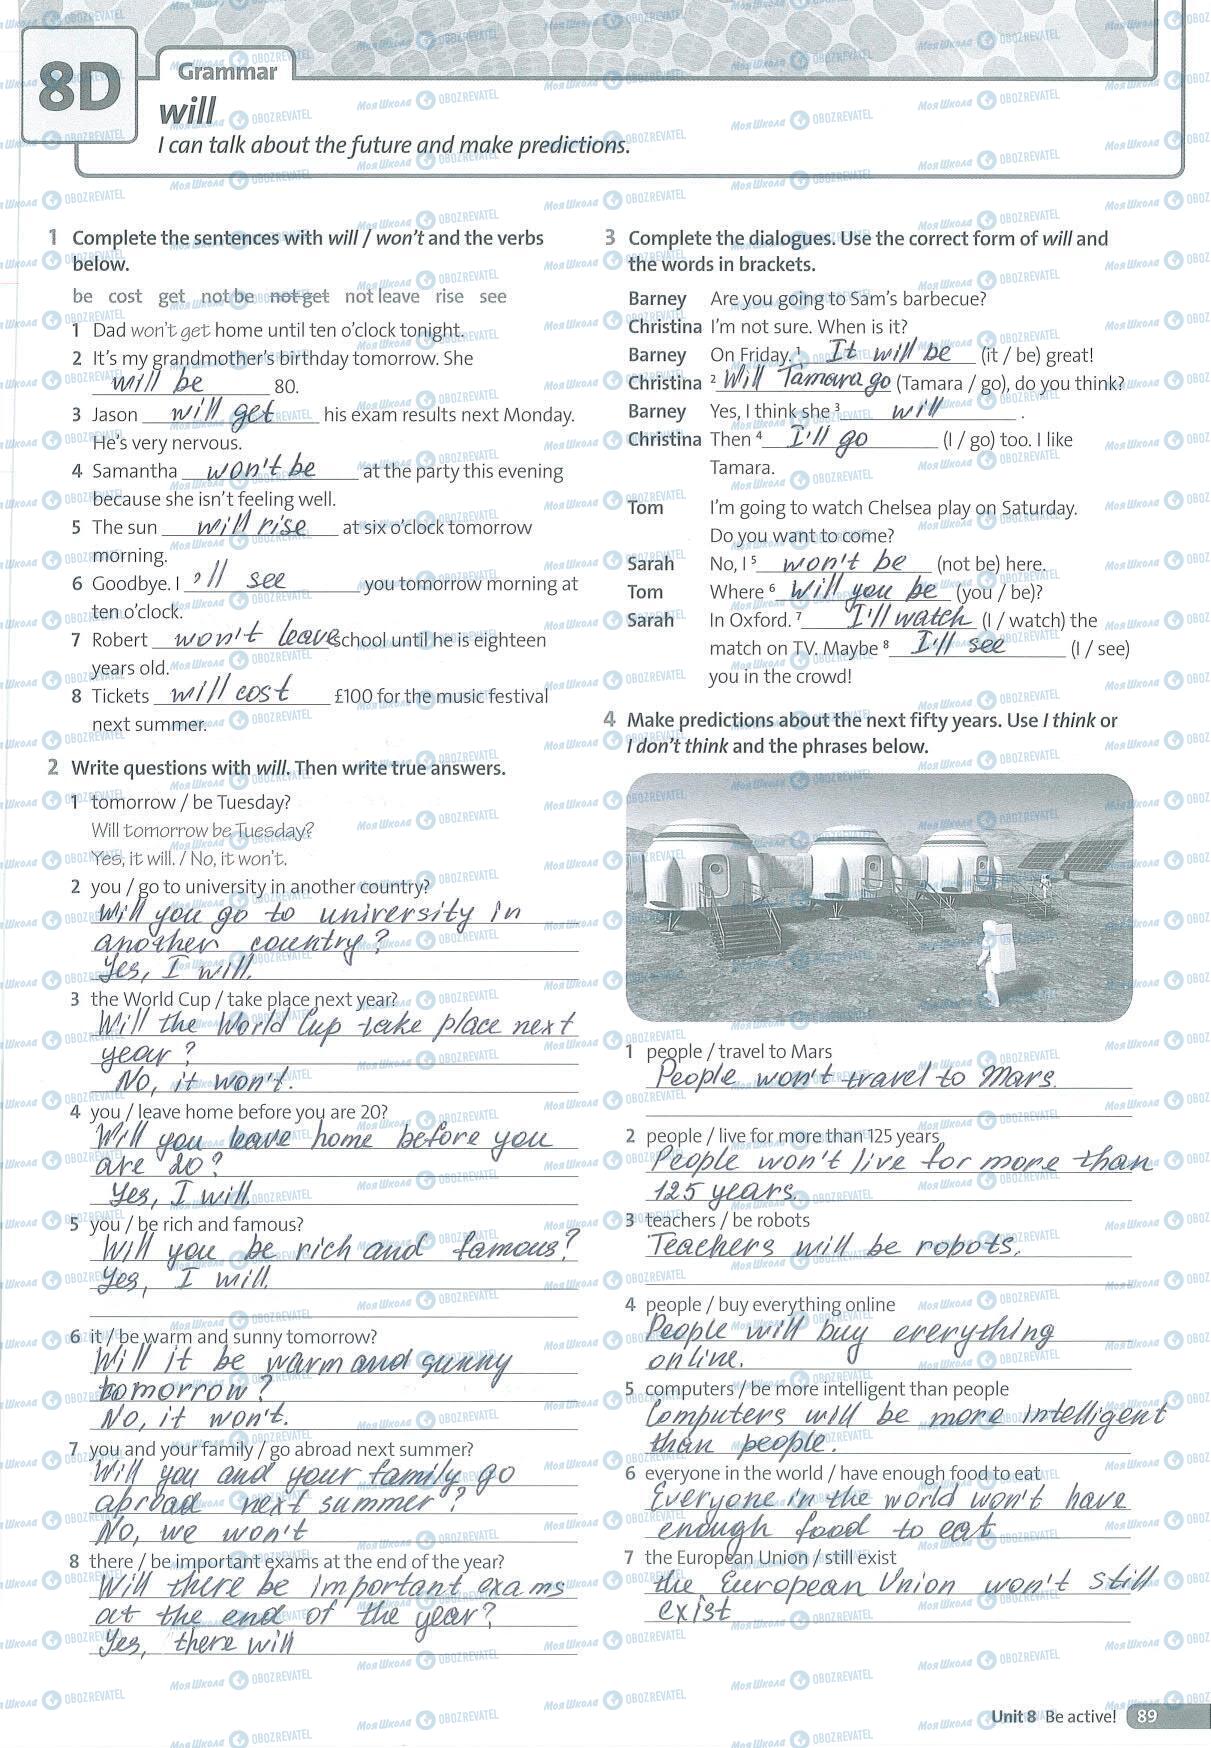 8D
Grammar
will
I can talk about the future and make predictions.
1 Complete the sentences with will / won't and the verbs
below.
be cost get not be not get not leave rise see
1 Dad won't get home until ten o'clock tonight.
2 It's my grandmother's birthday tomorrow. She
will be 80.
3 Jason will get his exam results next Monday.
He's very nervous.
4 Samantha won't be at the party this evening
because she isn't feeling well.
5 The sun will rise at six o'clock tomorrow
morning.
6 Goodbye. I 'll see you tomorrow morning at
ten o'clock.
7 Robert won't leave school until he is eighteen
years old.
8 Tickets will cost £100 for the music festival
next summer.
2 Write questions with will. Then write true answers.
1 tomorrow / be Tuesday?
Will tomorrow be Tuesday?
Yes, it will. / No, it won't.
2 you / go to university in another country?
Will you go to university in
another country?
Yes, I will.
3 the World Cup / take place next year?
Will the World Cup take place next
year?
No, it won't.
4 you / leave home before you are 20?
Will you leave home before you
are 20?
Yes, I will.
5 you / be rich and famous?
Will you be rich and famous?
Yes, I will.
6 it / be warm and sunny tomorrow?
Will it be warm and sunny
tomorrow?
No, it won't.
7 you and your family / go abroad next summer?
Will you and your family go
abroad next summer?
No, we won't
8 there / be important exams at the end of the year?
Will there be important exams
at the end of the year?
Yes, there will
3 Complete the dialogues. Use the correct form of will and
the words in brackets.
Barney Are you going to Sam's barbecue?
Christina I'm not sure. When is it?
Barney On Friday. 1 It will be (it / be) great!
Christina 2 Will Tamara go (Tamara / go), do you think?
Barney Yes, I think she 3 will .
Christina Then 4 I'll go (I / go) too. I like
Tamara.
Tom I'm going to watch Chelsea play on Saturday.
Do you want to come?
Sarah No, I 5 won't be (not be) here.
Tom Where 6 Will you be (you / be)?
Sarah In Oxford. 7 I'll watch (I / watch) the
match on TV. Maybe 8 I'll see (I / see)
you in the crowd!
4 Make predictions about the next fifty years. Use I think or
I don't think and the phrases below.
1 people / travel to Mars
People won't travel to Mars.
2 people / live for more than 125 years
People won't live for more than
125 years.
3 teachers / be robots
Teachers will be robots.
4 people / buy everything online
People will buy everything
online.
5 computers / be more intelligent than people
Computers will be more intelligent
than people.
6 everyone in the world / have enough food to eat
Everyone in the world won't have
enough food to eat
7 the European Union / still exist
the European Union won't still
exist
Unit 8 Be active! 89
Моя Школа OBOZREVATEL